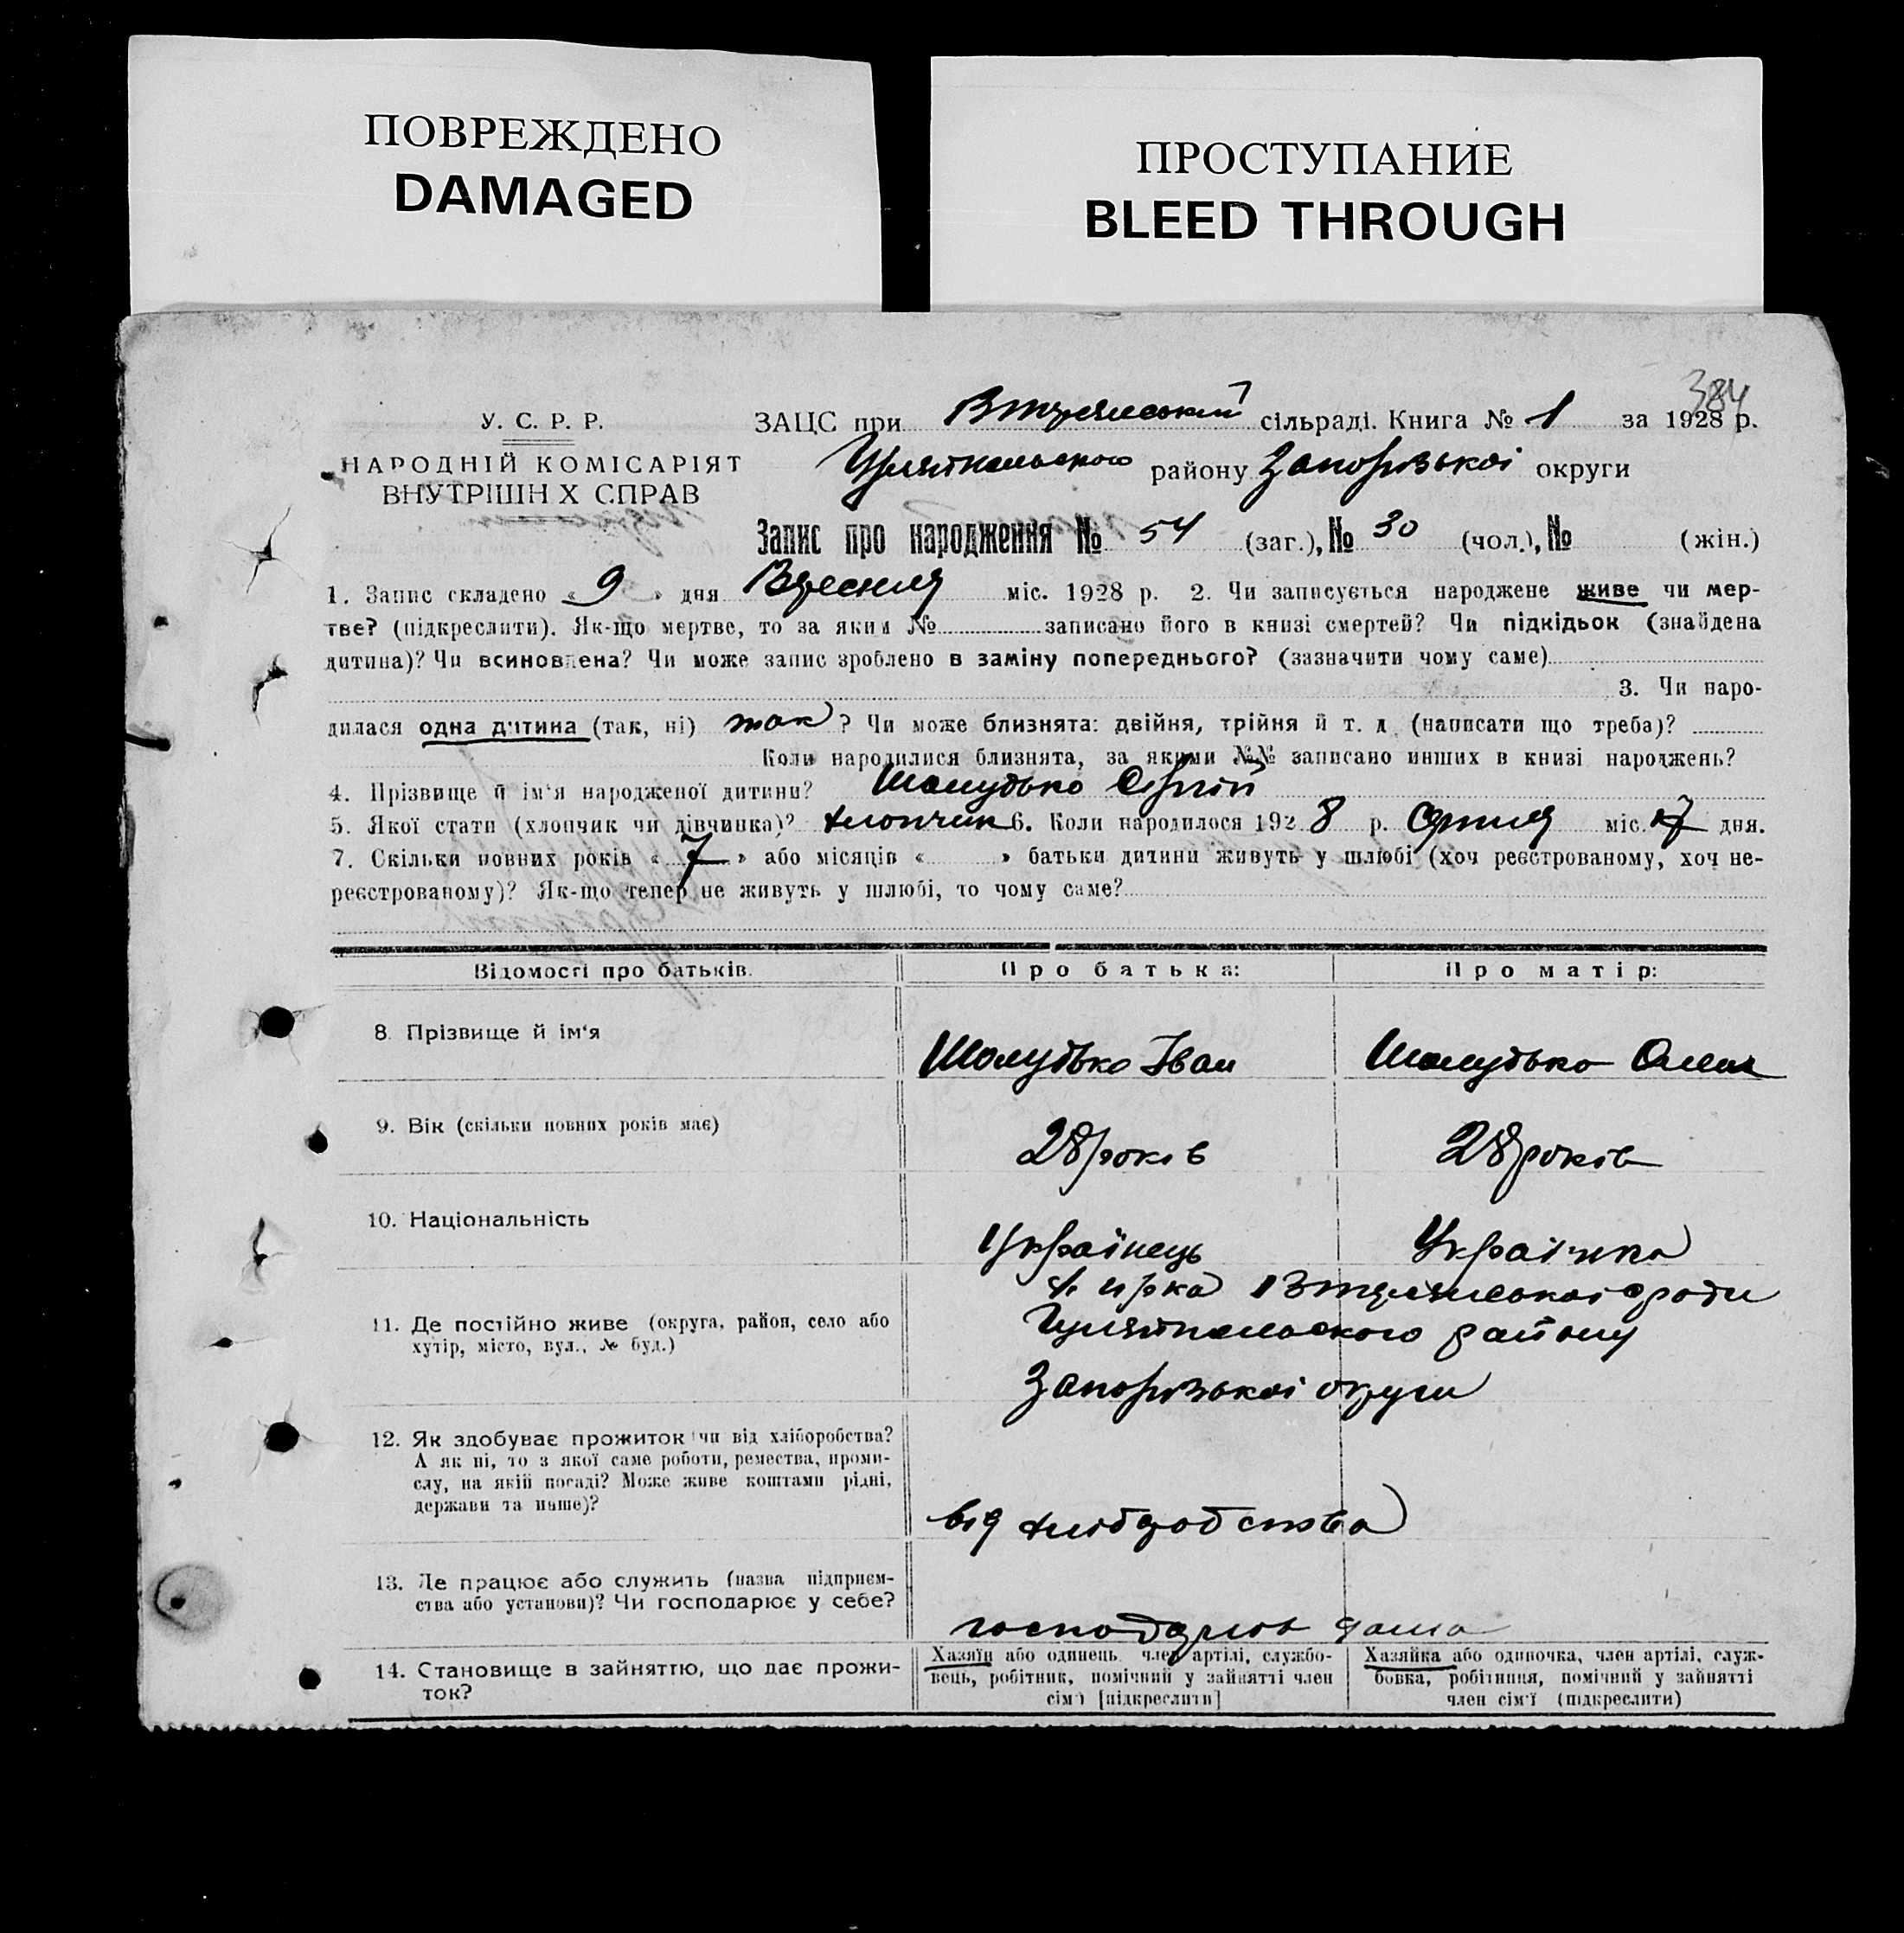 ПОВРЕЖДЕНО
DAMAGED
ПРОСТУПАНИЕ
BLEED THROUGH
384
У. С. Р. Р.
НАРОДНІЙ КОМІСАРІЯТ
ВНУТРІШН Х СПРАВ
ЗАЦС при сільраді. Книга № 1 за 1928 р.
району Запорізької округи
Запис про народження № 54 (заг.), № 30 (чол.), № (жін.)
1. Запис складено « 9 » дня Вересня міс. 1928 р. 2. Чи записується народжене живе чи мер-
тве? (підкреслити). Як-що мертве, то за яким № записано його в книзі смертей? Чи підкідьок (знайдена
дитина)? Чи всиновлена? Чи може запис зроблено в заміну попереднього? (зазначити чому саме)
3. Чи наро-
дилася одна дитина (так, ні) так ? Чи може близнята: двійня, трійня й т. д. (написати що треба)?
Коли народилися близнята, за якими №№ записано инших в книзі народжень?
4. Прізвище й ім'я народженої дитини? Шолудько Сергій
5. Якої стати (хлопчик чи дівчинка)? хлопчик 6. Коли народилося 192 8 р. Серпня міс. 17 дня.
7. Скільки повних років « 7 » або місяців « » батьки дитини живуть у шлюбі (хоч реєстрованому, хоч не-
реєстрованому)? Як-що тепер не живуть у шлюбі, то чому саме?
Відомості про батьків.
Про батька:
Про матір:
8. Прізвище й ім'я
Шолудько Іван
Шолудько Олена
9. Вік (скільки повних років має)
28 років
28 років
10. Національність
Українець
Українка
11. Де постійно живе (округа, район, село або
хутір, місто, вул., № буд.)
району
Запорізької округи
12. Як здобуває прожиток чи від хліборобства?
А як ні, то з якої саме роботи, ремества, проми-
слу, на якій посаді? Може живе коштами рідні,
держави та инше)?
від хліборобства
13. Де працює або служить (назва підприєм-
ства або установи)? Чи господарює у себе?
господарює дома
14. Становище в зайняттю, що дає прожи-
ток?
Хазяїн або одинець, член артілі, службо-
вець, робітник, помічний у зайнятті член
сім'ї [підкреслити]
Хазяйка або одиночка, член артілі, служ-
бовка, робітниця, помічний у зайнятті
член сім'ї (підкреслити)